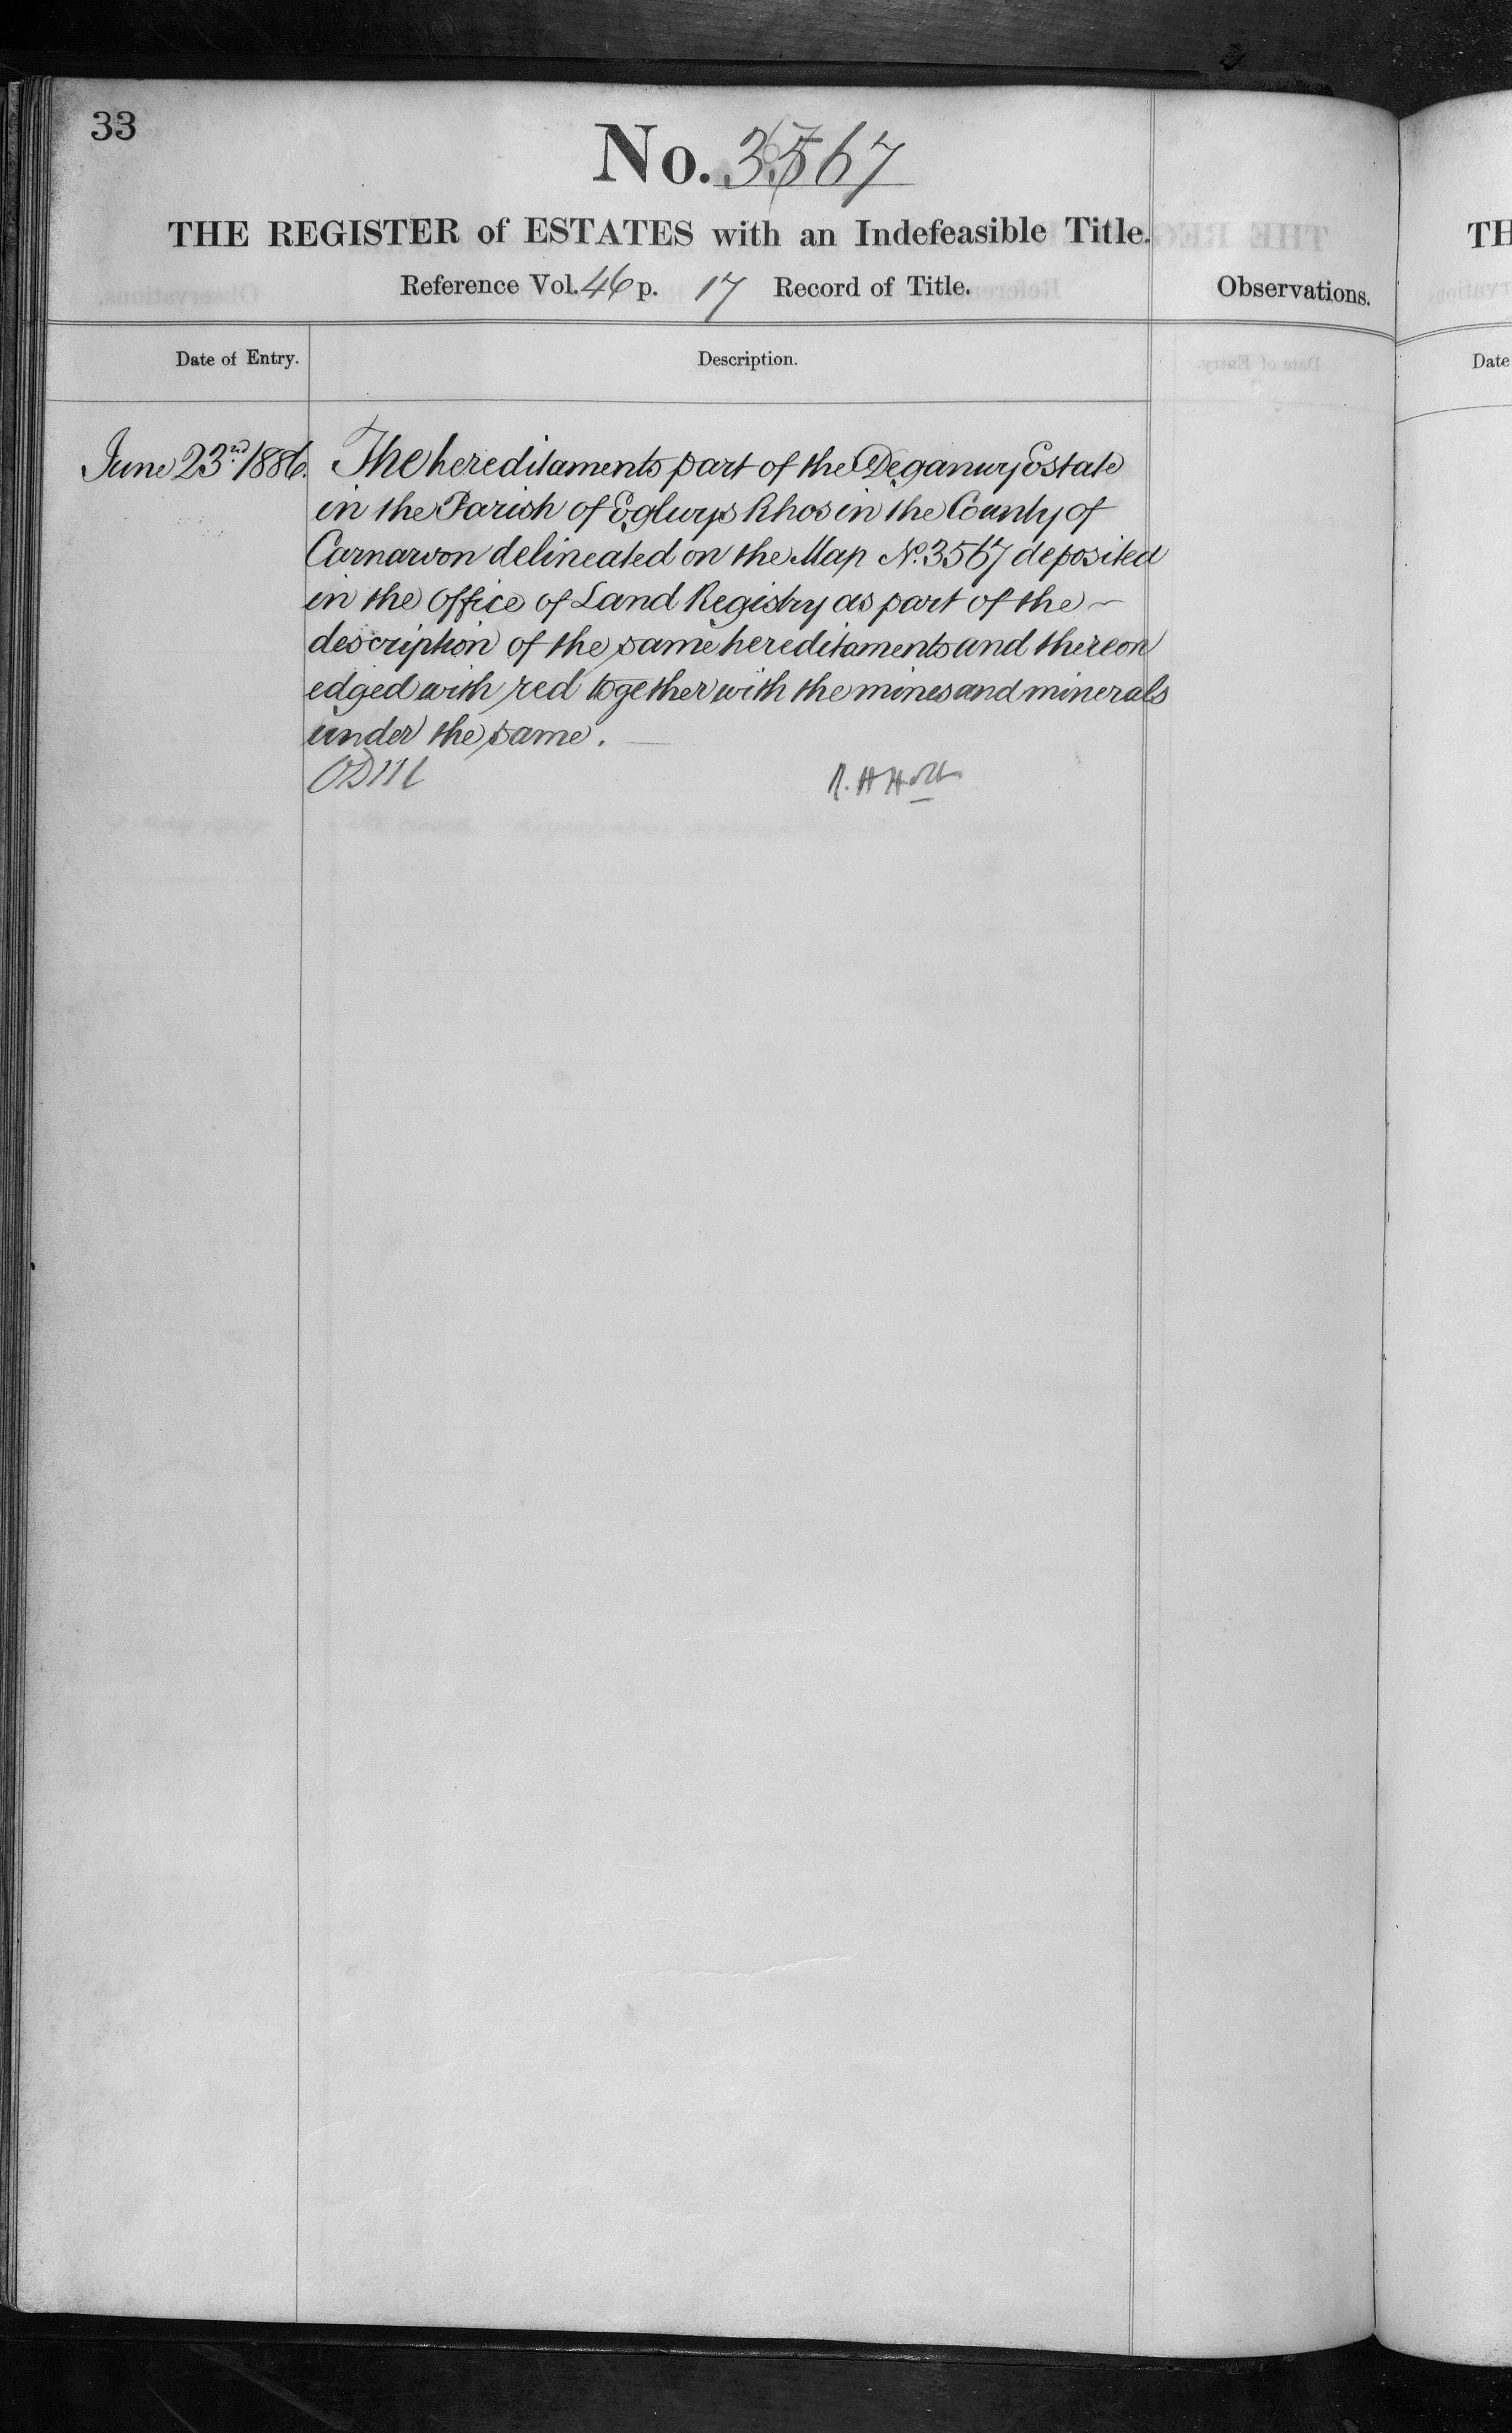 33
No. 3567
THE REGISTER of ESTATES with an Indefeasible Title.
Reference Vol. 46 p. 17 Record of Title.
Observations.
Date of Entry.
Description.
June 23rd 1886.
The hereditaments part of the Deganwy Estate
in the Parish of Eglwys Rhos in the County of
Carnarvon delineated on the Map No. 3567 deposited
in the Office of Land Registry as part of the –
description of the same hereditaments and thereon
edged with red together with the mines and minerals
under the same. —
R. H Holt
TH
Date